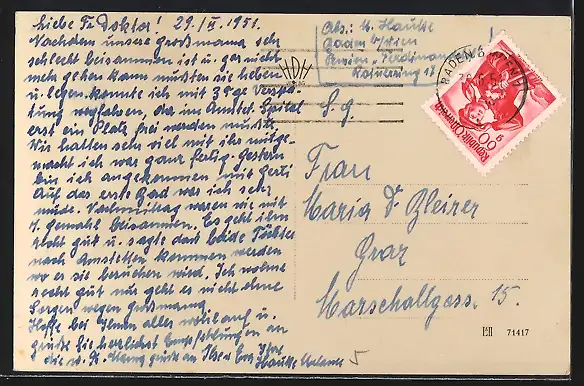 Liebe Fr. Doktor! 29./6. 1951.
Nachdem unsere Großmama sehr
schlecht beisammen ist u. gar nicht
mehr gehen kann mußten sie heben
u. legen konnte ich mit 3 Tage Verspä-
tung wegfahren, da im Amstet. Spital
erst ein Platz frei werden mußte.
Wir hatten sehr viel mit ihr mitge-
macht ich war ganz fertig. Gestern
bin ich angekommen mit Gerti
Auf das erste Bad war ich sehr
müde. Nachmittag waren wir mit
Gemahl beisammen. Es geht ihm
recht gut u. sagte daß beide Töchter
nach Amstetten kommen werden
wo er sie besuchen wird. Ich wohne
recht gut nur geht es nicht ohne
Sorgen wegen Großmama
Hoffe bei Ihnen alles wohlauf u.
grüße Sie herzlichst Empfehlungen an
die Grüße an
Hauke
Abs.: Hauke
Baden b/Wien
Pension „Ferdinand
BADEN B. WIEN
REPUBLIK ÖSTERREICH
60 g
S. g.
Frau
Maria Dr Bleirer
Graz
Marschallgass. 15.
71417